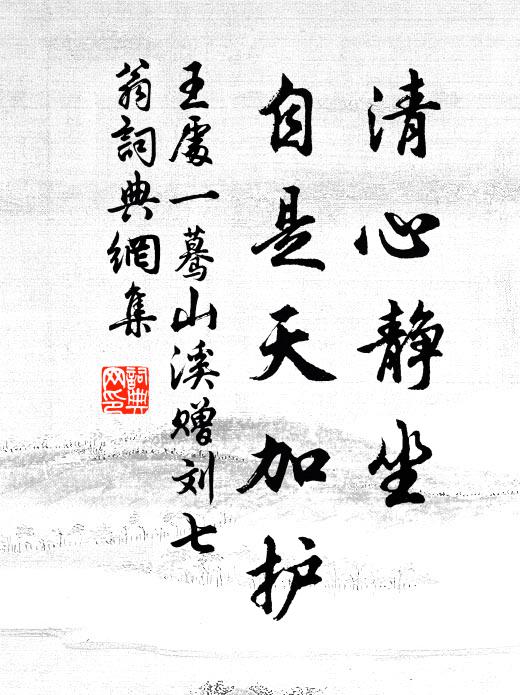 清心静坐
自是天加护
王處一蓦山溪赠刘七
翁詞典網集
詞典网印